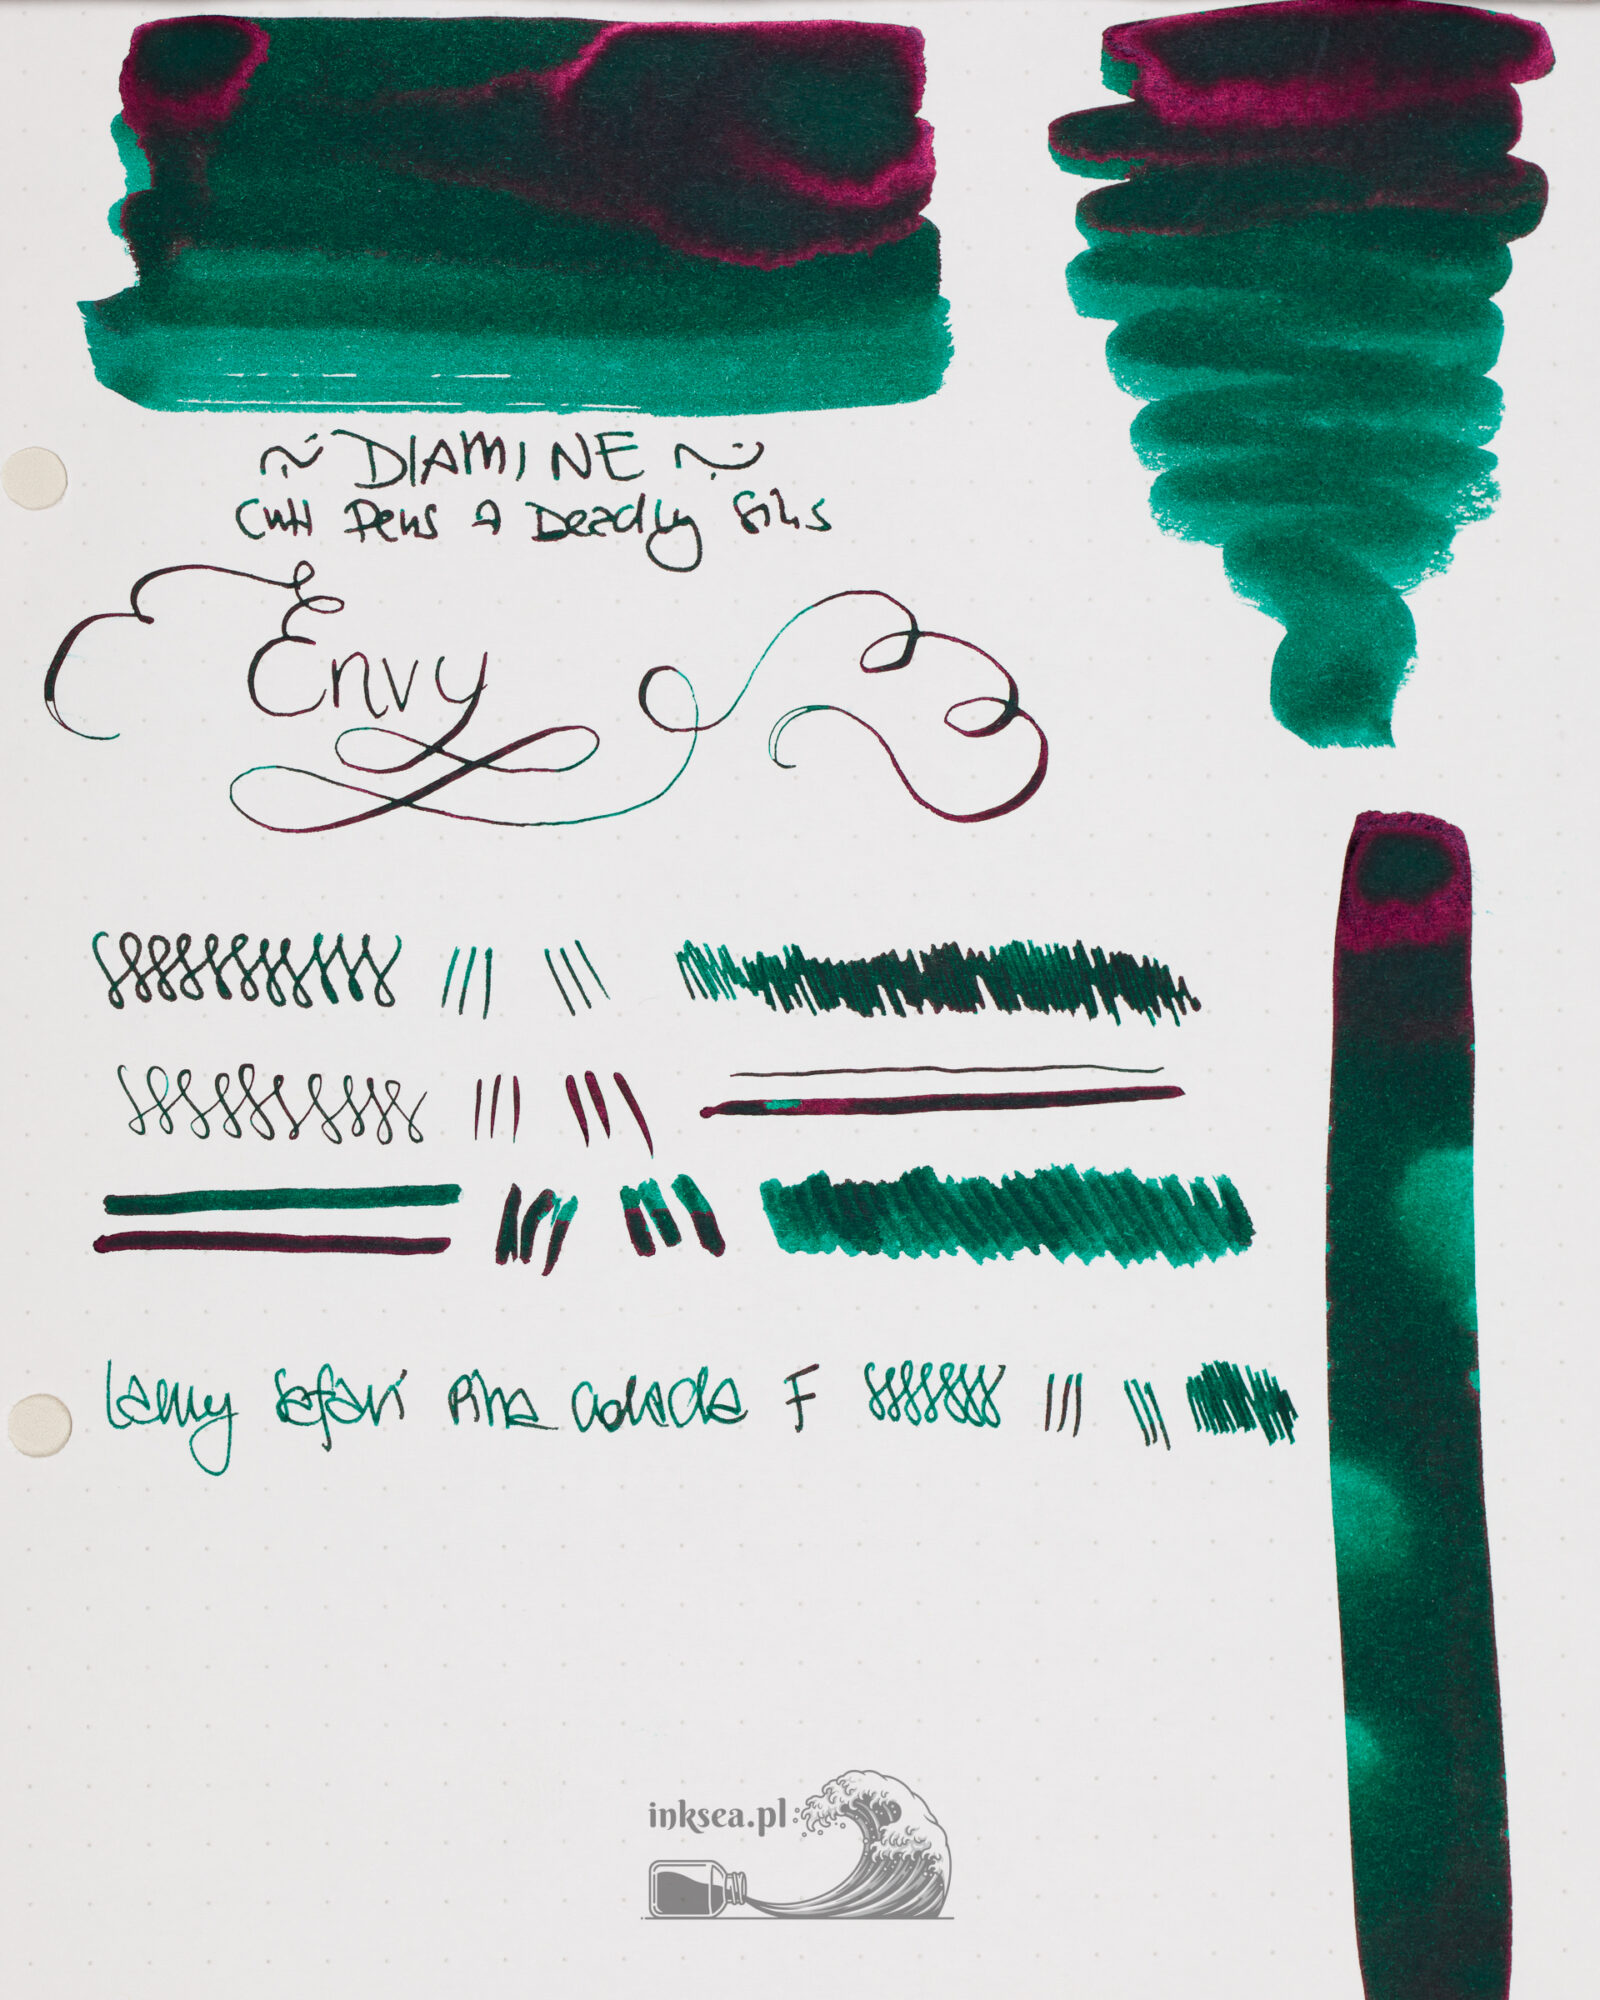 ~ DIAMINE ~
Cult Pens 7 Deadly Sins
Envy
Lamy Safari Pina Colada F
inksea.pl